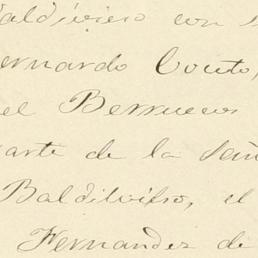 Baldivieso con
Bernardo Couto,
el Berruecos
parte de la Señ
Baldivieso, el
Fernandez de